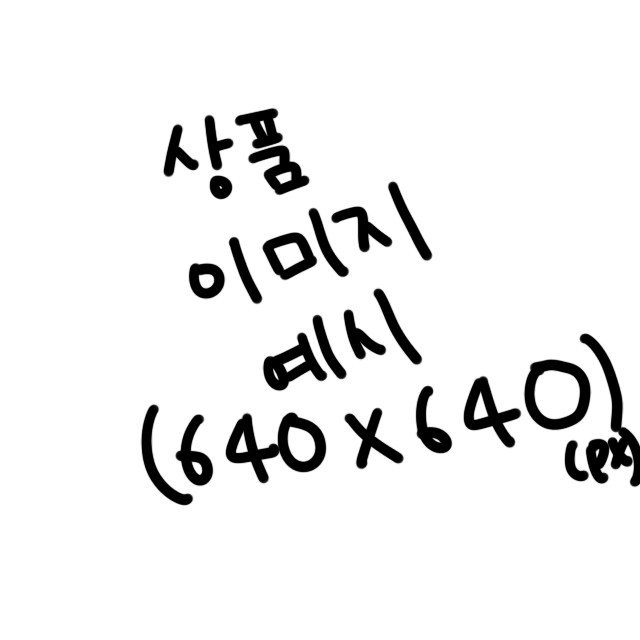 상품
이미지
예시
(640x640)
(px)